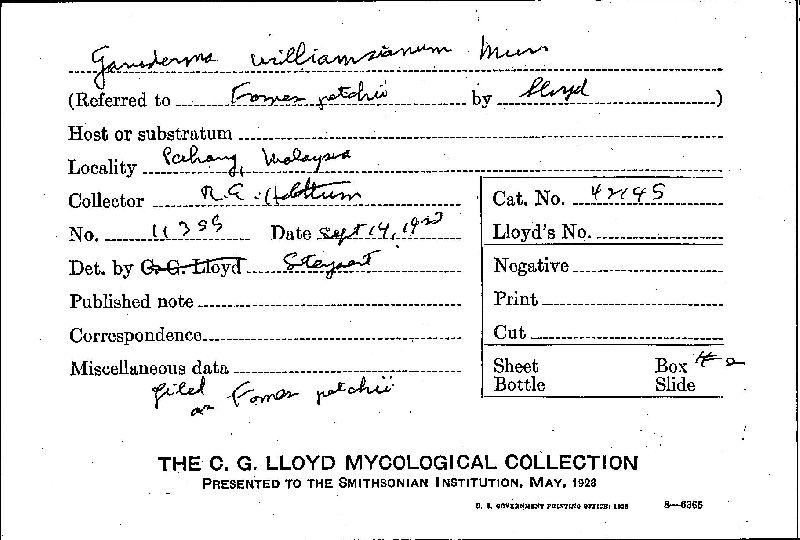 Ganoderma williamsianum Murr
(Referred to Fomes petchii by Lloyd)
Host or substratum
Locality Pahang, Malaysia
Collector R.E. Holttum
No. 11399 Date Sept 14, 1923
Det. by C. G. Lloyd Steyaert
Published note
Correspondence
Miscellaneous data
filed
as Fomes petchii
Cat. No. 42145
Lloyd's No.
Negative
Print
Cut
Sheet Box # 2
Bottle Slide
THE C. G. LLOYD MYCOLOGICAL COLLECTION
PRESENTED TO THE SMITHSONIAN INSTITUTION, MAY, 1928
U. S. GOVERNMENT PRINTING OFFICE: 1928 8—6365